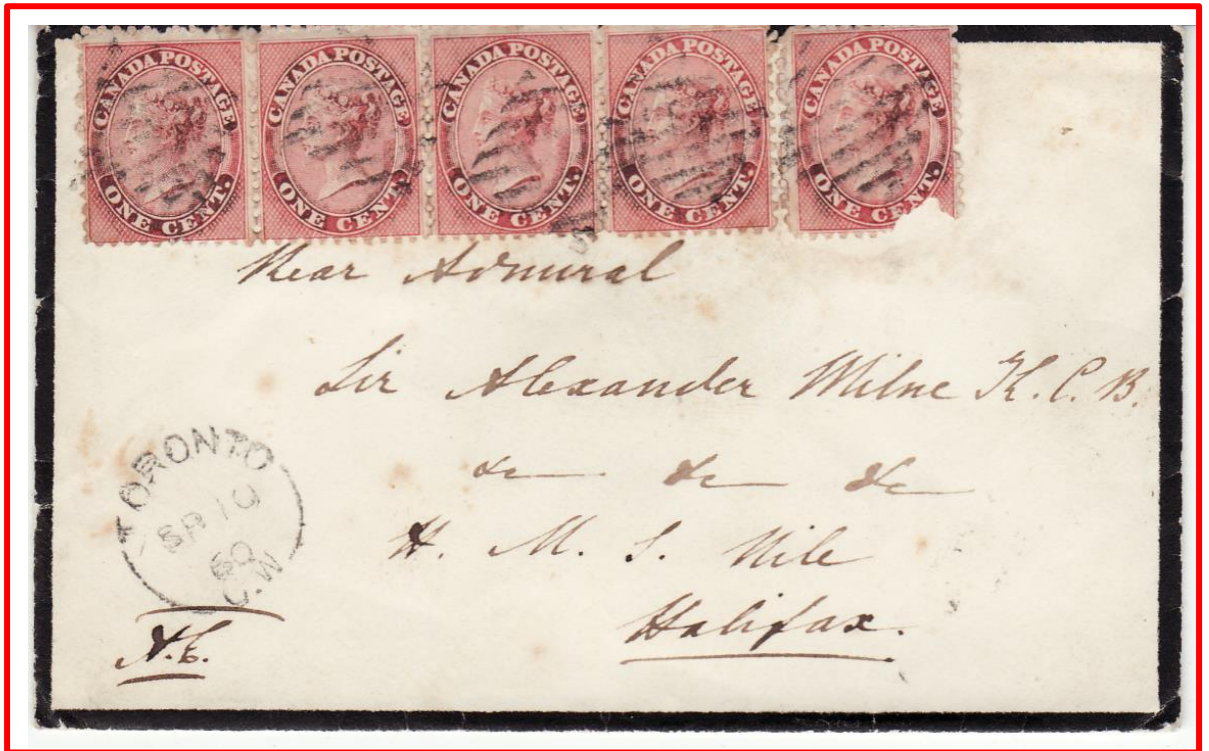 CANADA POSTAGE ONE CENT. CANADA POSTAGE ONE CENT. CANADA POSTAGE ONE CENT. CANADA POSTAGE ONE CENT. CANADA POSTAGE ONE CENT.
Rear Admiral
Sir Alexander Milne K. C. B.
&c &c &c
H. M. S. Nile
Halifax.
TORONTO
SP 10
60
C.W